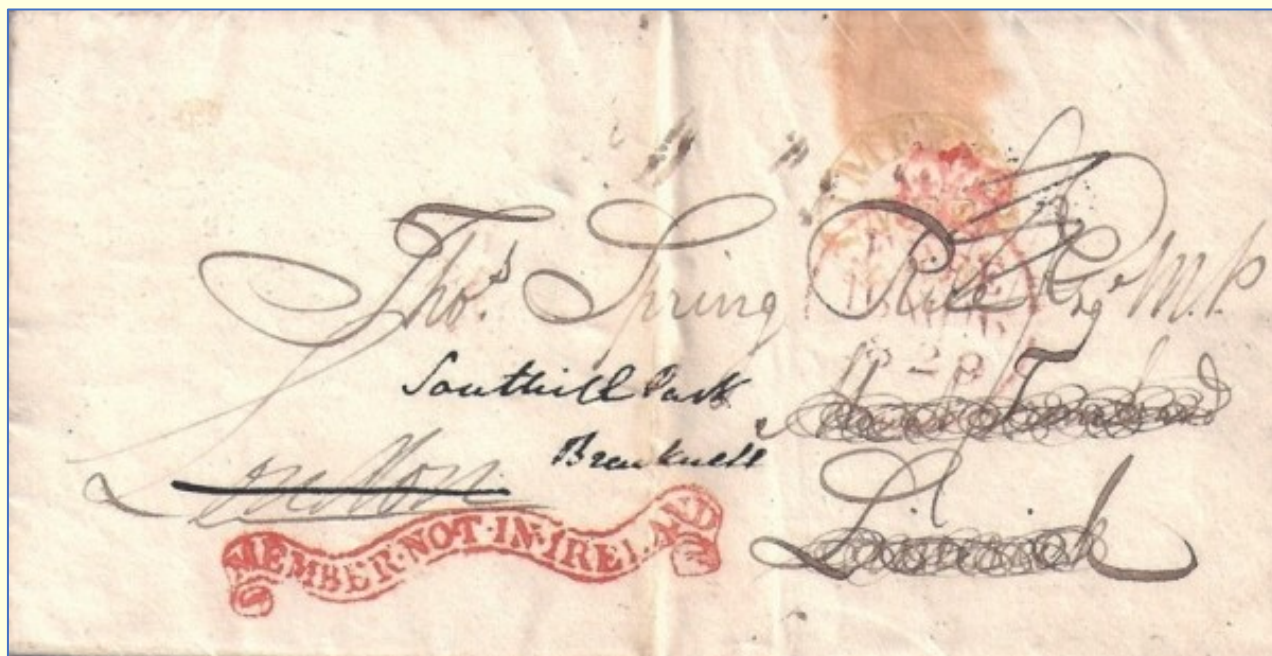 Thos. Spring Rice Esqr. M.P.
Southill Park
Bracknell
London
Limerick
MEMBER·NOT·IN·IRELAND
1828